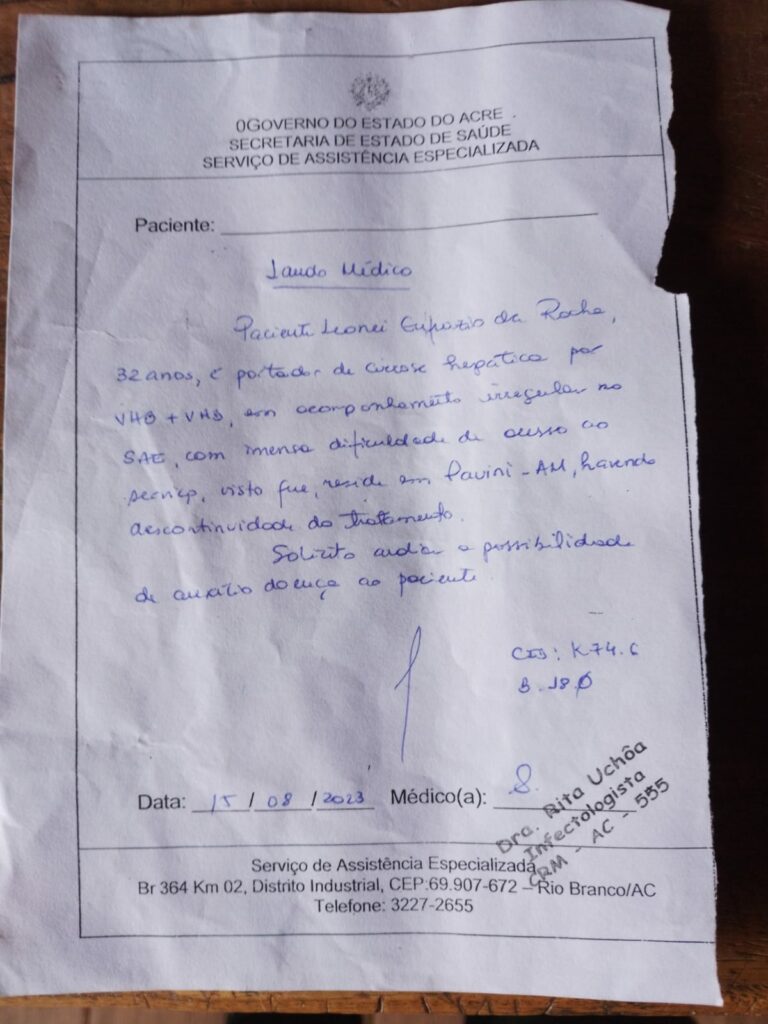 0GOVERNO DO ESTADO DO ACRE
SECRETARIA DE ESTADO DE SAÚDE
SERVIÇO DE ASSISTÊNCIA ESPECIALIZADA
Paciente:
Laudo Médico
Paciente Leonei da Rocha,
32 anos, é portador de cirrose hepática por
VHB + VHD, em acompanhamento irregular no
SAE, com imensa dificuldade de acesso ao
serviço, visto que, reside em Pauini - AM, havendo
descontinuidade do tratamento.
Solicito avaliar a possibilidade
de auxílio doença ao paciente.
CID: K74.6
B.18.0
Data: 15 / 08 / 2023 Médico(a):
Dra. Rita Uchôa
Infectologista
CRM - AC - 555
Serviço de Assistência Especializada
Br 364 Km 02, Distrito Industrial, CEP:69.907-672 – Rio Branco/AC
Telefone: 3227-2655